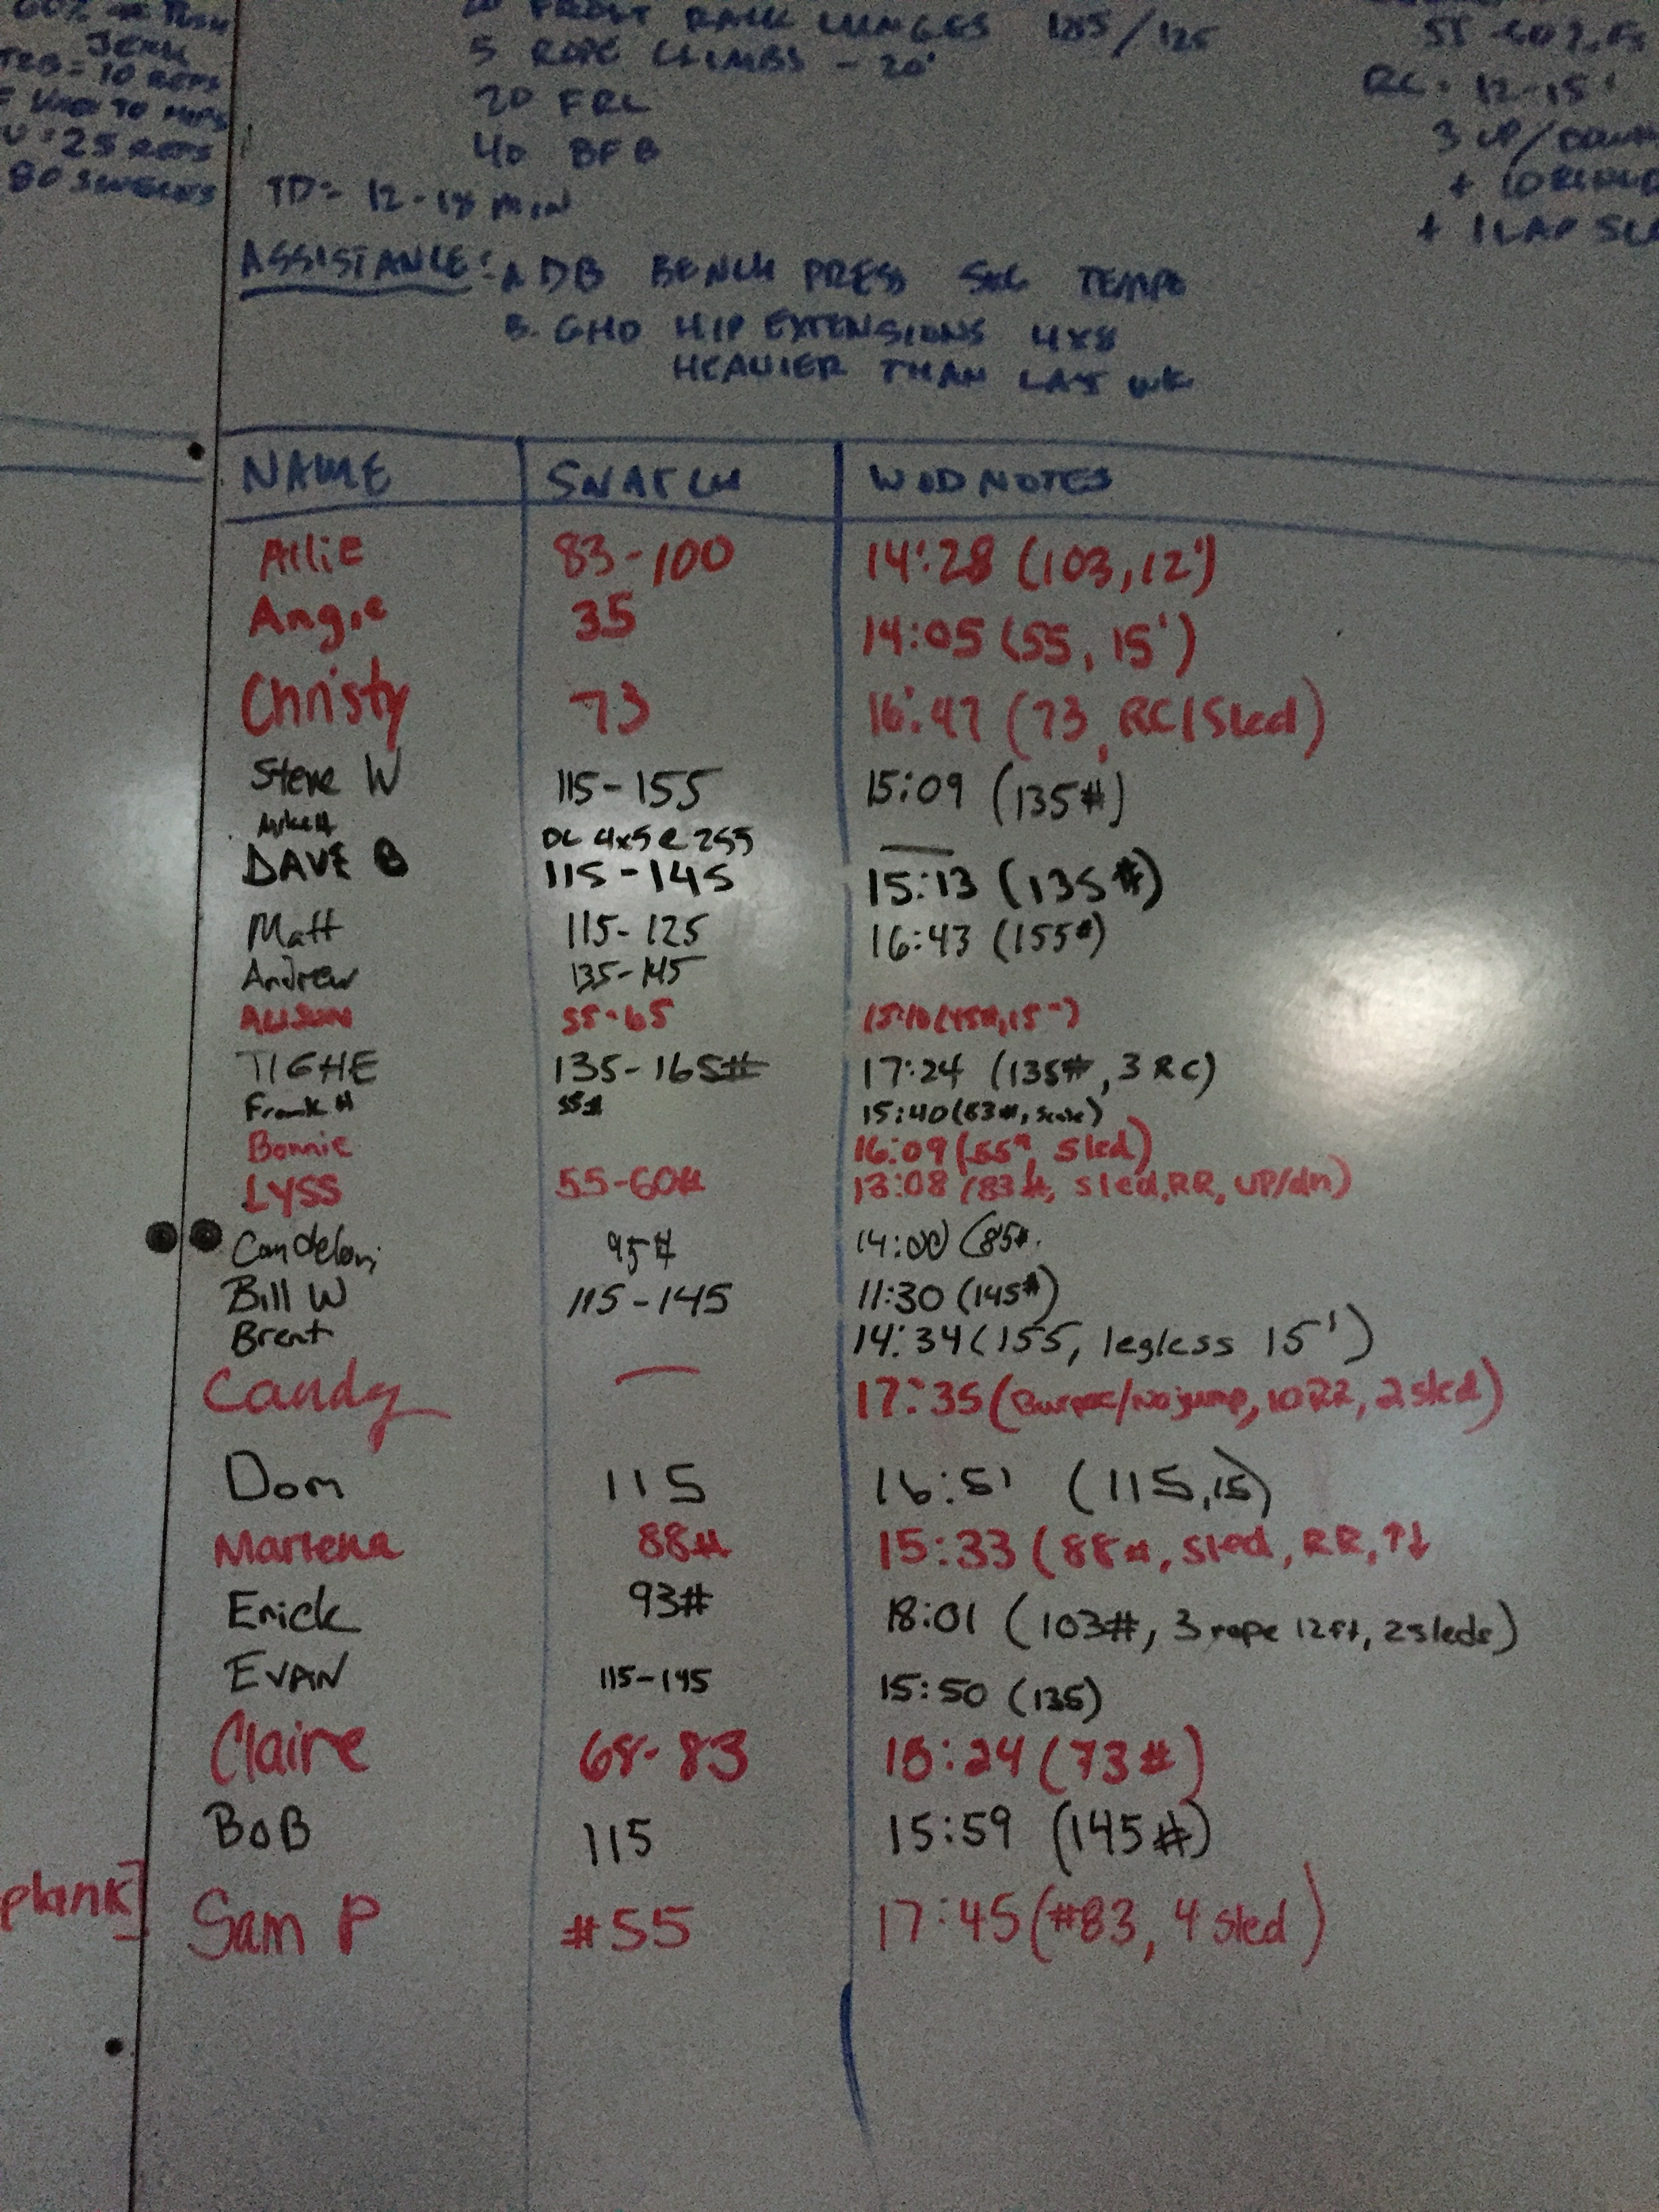 60% Push
JERK
= 10 REPS
= 25 REPS
80
FRONT RACK LUNGES 185/125
5 ROPE CLIMBS - 20'
20 FRL
40 BFB
TD = 12-18 MIN
55-60%
RC = 12-15'
3 UP/DOWN
+ 10
+ 1 LAP
ASSISTANCE: A DB BENCH PRESS SEC TEMPO
B. GHD HIP EXTENSIONS 4x8
HEAVIER THAN LAST WK
NAME SNATCH WOD NOTES
Allie 83-100 14:28 (103, 12')
Angie 35 14:05 (55, 15')
Christy 73 16:47 (73, RC/Sled)
Steve W 115-155 15:09 (135#)
Mike H DL 4x5 @ 255 —
DAVE B 115-145 15:13 (135#)
Matt 115-125 16:43 (155#)
Andrew 135-145
ALISON 55-65 15:10 (45#, 15')
TIGHE 135-165# 17:24 (135#, 3 RC)
Frank H 55# 15:40 (83#, scale)
Bonnie 16:09 (55#, Sled)
LYSS 55-60# 13:08 (83#, sled, RR, UP/dn)
Candelori 95# 14:00 (85#.
Bill W 115-145 11:30 (145#)
Brent 14:34 (155, legless 15')
Candy — 17:35 (Burpee/No jump, 10 RR, 2 sled)
Dom 115 16:51 (115, 15)
Marlena 88# 15:33 (88#, sled, RR, ↑↓
Erick 93# 18:01 (103#, 3 rope 12ft, 2 sleds)
EVAN 115-145 15:50 (135)
Claire 68-83 18:24 (73#)
BOB 115 15:59 (145#)
plank]
Sam P #55 17:45 (#83, 4 sled)